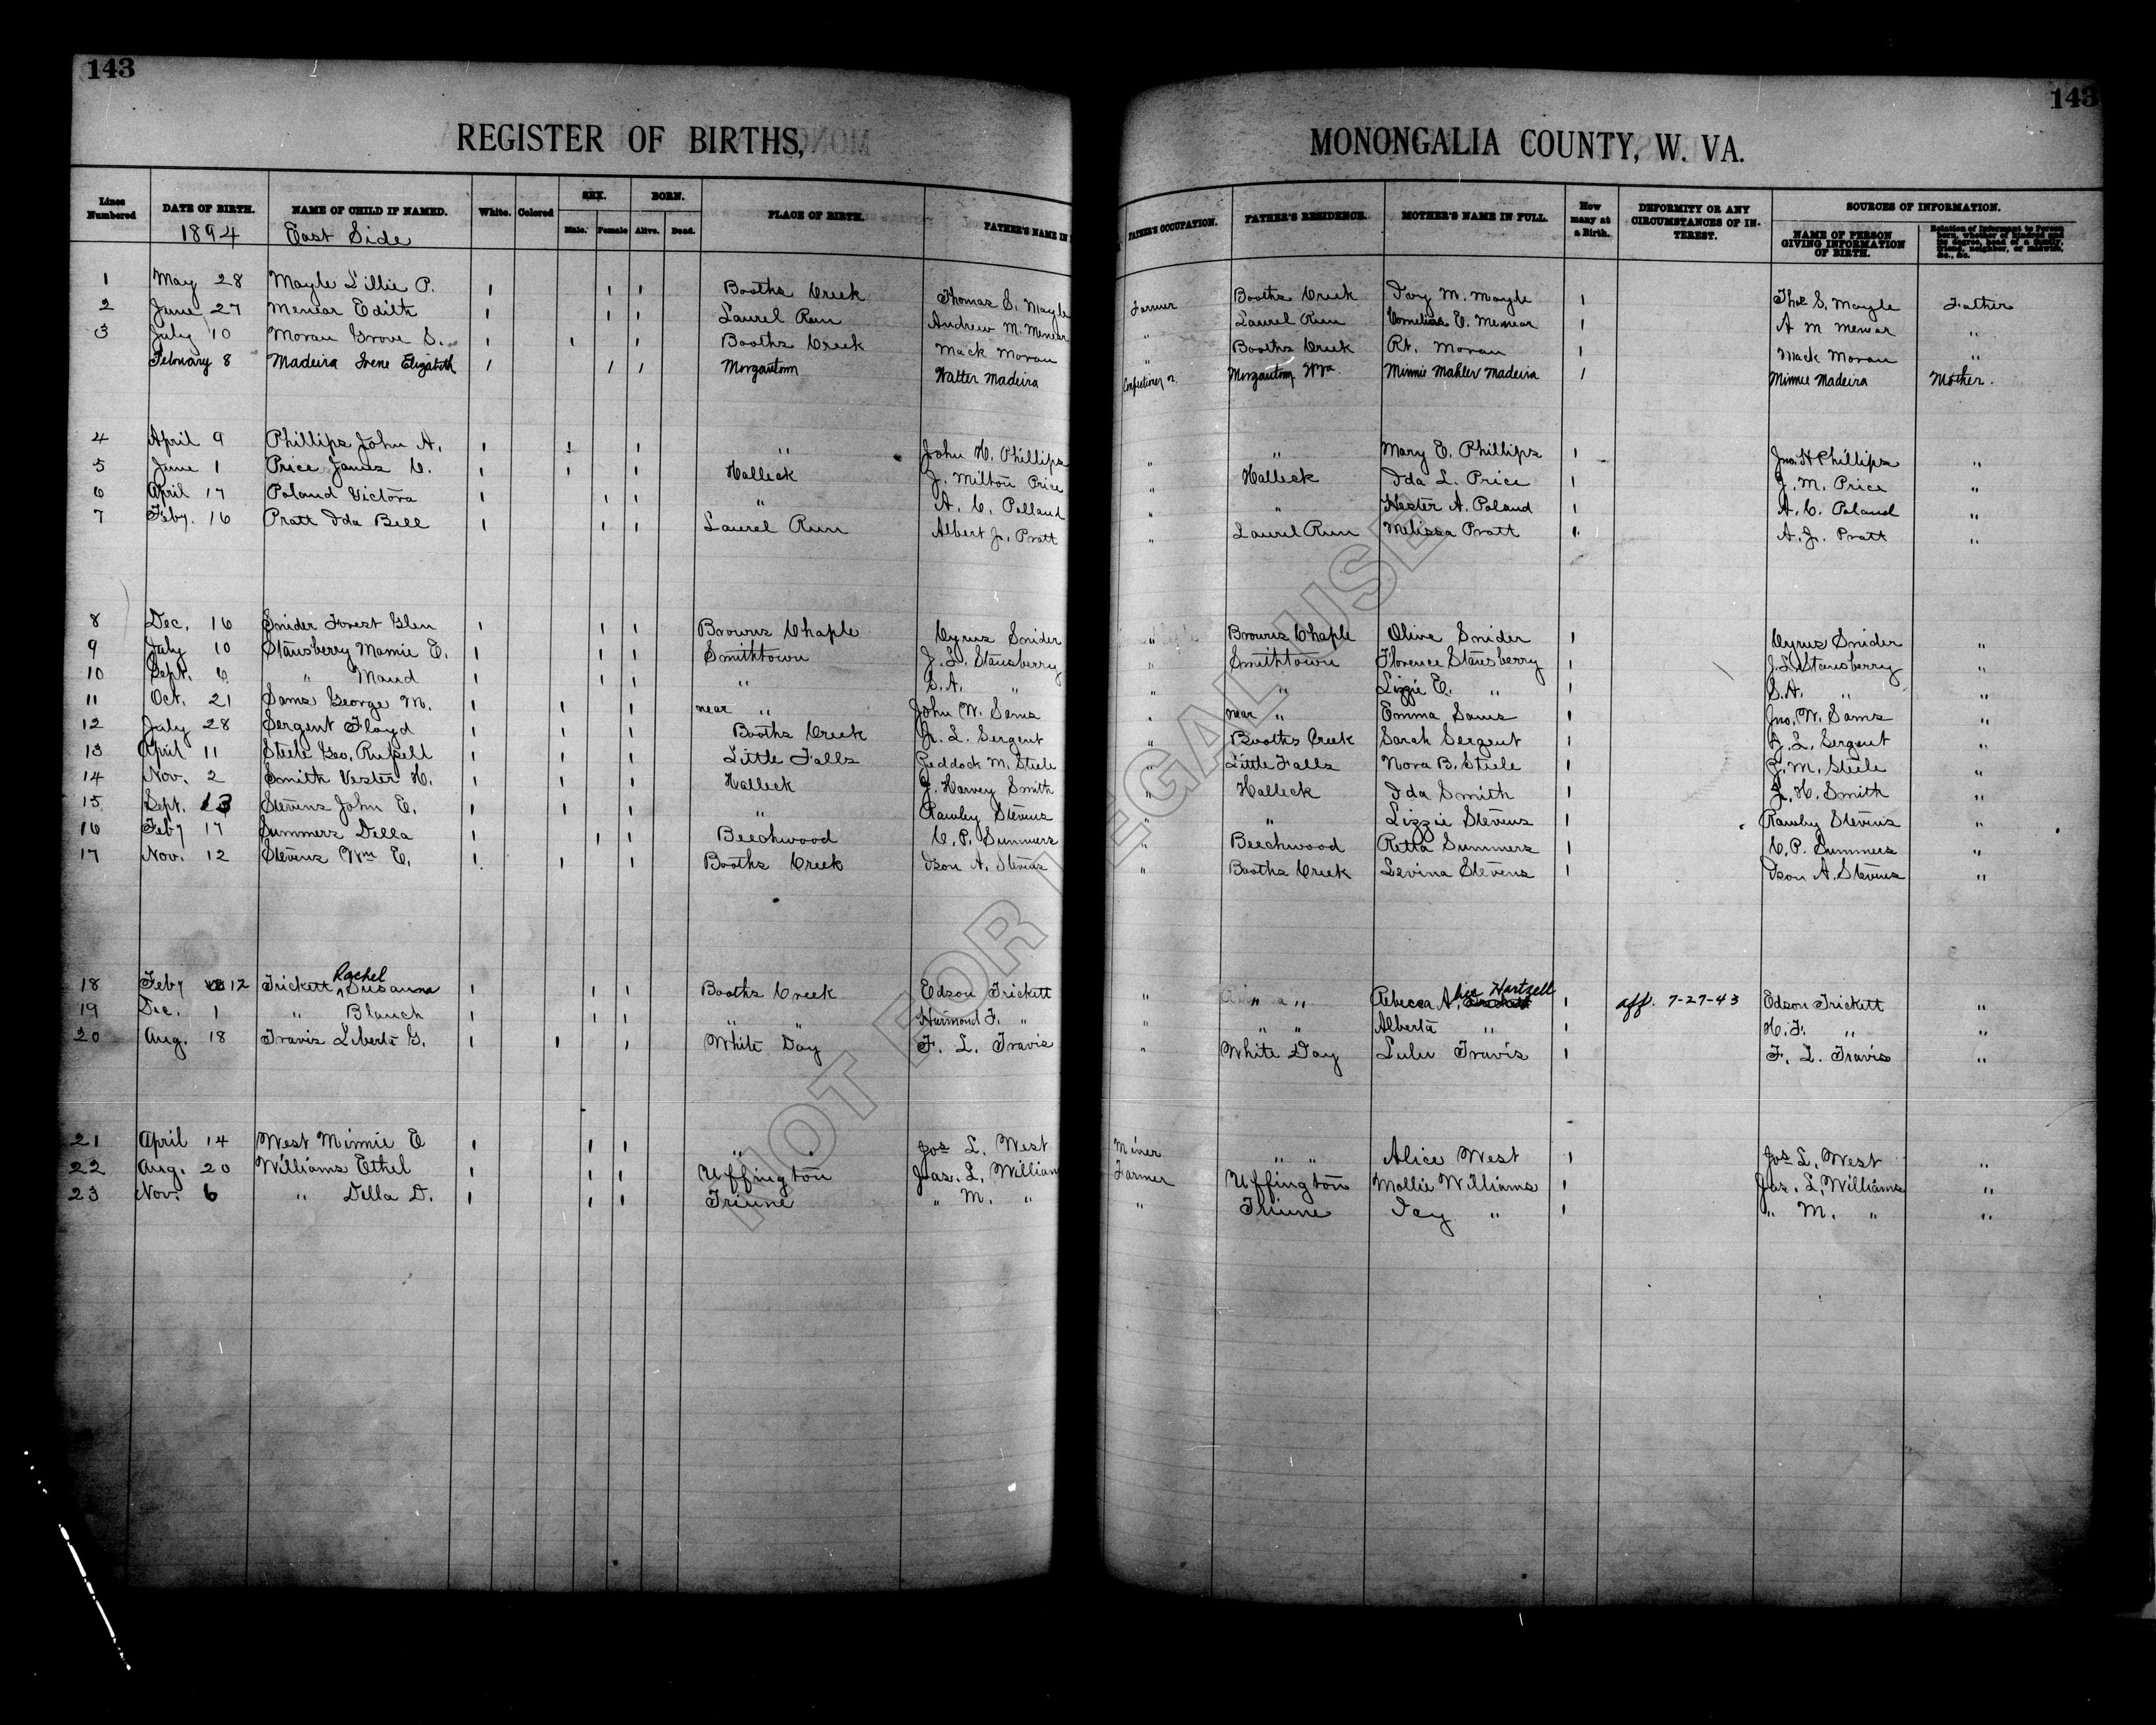 143
143
REGISTER OF BIRTHS, MONONGALIA COUNTY, W. VA.
Lines Numbered DATE OF BIRTH. NAME OF CHILD IF NAMED. White. Colored SEX. Male. Female BORN. Alive. Dead. PLACE OF BIRTH. FATHER'S NAME IN FATHER'S OCCUPATION. FATHER'S RESIDENCE. MOTHER'S NAME IN FULL. How many at a Birth. DEFORMITY OR ANY CIRCUMSTANCES OF INTEREST. SOURCES OF INFORMATION. NAME OF PERSON GIVING INFORMATION OF BIRTH. Relation of Informant to Person born, whether of kindred and its degree, head of a family, friend, neighbor, or midwife, &c., &c.
1894 East Side
1 May 28 Mayle Lillie P. 1 1 1 Booths Creek Thomas S. Mayle Farmer Booths Creek Ivy M. Mayle 1 Thos S. Mayle Father
2 June 27 Menear Edith 1 1 1 Laurel Run Andrew M. Menear " Laurel Run Cornelias E. Menear 1 A M Menear "
3 July 10 Moran Grove S. 1 1 1 Booths Creek Mack Moran " Booths Creek Rt. Moran 1 Mack Moran "
February 8 Madeira Irene Elizabeth 1 1 1 Morgantown Walter Madeira Morgantown W Va. Minnie Mahler Madeira 1 Minnie Madeira Mother.
4 April 9 Phillips John A. 1 1 1 " John H. Phillips " " Mary E. Phillips 1 Jno. H Phillips "
5 June 1 Price James C. 1 1 1 Halleck J. Milton Price " Halleck Ida L. Price 1 J. M. Price "
6 April 17 Poland Victora 1 1 1 " A. C. Polland " " Hester A. Poland 1 A. C. Poland "
7 Feby. 16 Pratt Ida Bell 1 1 1 Laurel Run Albert J. Pratt " Laurel Run Melissa Pratt 1 A. J. Pratt "
8 Dec. 16 Snider Forest Glen 1 1 1 Browns Chaple Cyrus Snider " Browns Chaple Olive Snider 1 Cyrus Snider "
9 July 10 Stansberry Mamie E. 1 1 1 Smithtown J. L. Stansberry " Smithtown Florence Stansberry 1 J. L. Stansberry "
10 Sept. 6 " Maud 1 1 1 " S. A. " " " Lizzie E. " 1 S. A. " "
11 Oct. 21 Sams George M. 1 1 1 near " John W. Sams " near " Emma Sams 1 Jno. W. Sams "
12 July 28 Sergent Floyd 1 1 1 Booths Creek J. L. Sergent " Booths Creek Sarah Sergent 1 J. L. Sergent "
13 April 11 Steele Geo. Russell 1 1 1 Little Falls M. Steele " Little Falls Nora B. Steele 1 M. Steele "
14 Nov. 2 Smith Vester H. 1 1 1 Halleck J. Harvey Smith " Halleck Ida Smith 1 J. H. Smith "
15 Sept. 13 Stevens John E. 1 1 1 " Rawley Stevens " " Lizzie Stevens 1 Rawley Stevens "
16 Feby 17 Summers Della 1 1 1 Beechwood C. P. Summers " Beechwood Retta Summers 1 C. P. Summers "
17 Nov. 12 Stevens Wm E. 1 1 1 Booths Creek Ison A. Stevens " Booths Creek Levina Stevens 1 Ison A. Stevens "
Rachel
18 Feby 12 Trickett Susanna 1 1 1 Booths Creek Edson Trickett " " " Rebecca Hartzell 1 aff. 7-27-43 Edson Trickett "
19 Dec. 1 " Blanch 1 1 1 " " Harmond F. " " " " Alberta " 1 H. F. " "
20 Aug. 18 Travis Liberta G. 1 1 1 White Day F. L. Travis " White Day Lulu Travis 1 F. L. Travis "
21 April 14 West Minnie E 1 1 1 " Jos L. West Miner " " Alice West 1 Jos L. West "
22 Aug. 20 Williams Ethel 1 1 1 Uffington Jas. L. William Farmer Uffington Mollie Williams 1 Jas. L. Williams "
23 Nov. 6 " Della D. 1 1 1 Triune " M. " " Triune Ivy " 1 " M. " "
NOT FOR LEGAL USE